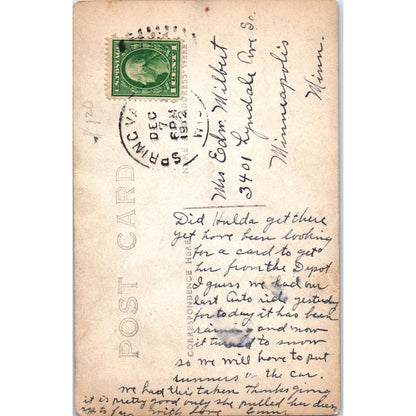 U.S. POSTAGE
1 CENT
SPRING VA
DEC
7
6 PM
1912
$120
POST CARD
NAME AND ADDRESS HERE
CORRESPONDENCE HERE
Mrs Edw. Milbert
3401 Lyndale Ave So.
Minneapolis
Minn.
Did Hulda get there
yet have been looking
for a card to get
her from the Depot
I guess we had our
last Auto ride yesterday
for today it has been
raining and now
it turned to snow
so we will have to put
runners on the car.
We had this taken Thanksgiving
it is pretty good only she pulled her dress
up to far. With Love